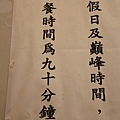 假日及巔峰時間，
餐時間為九十分鐘